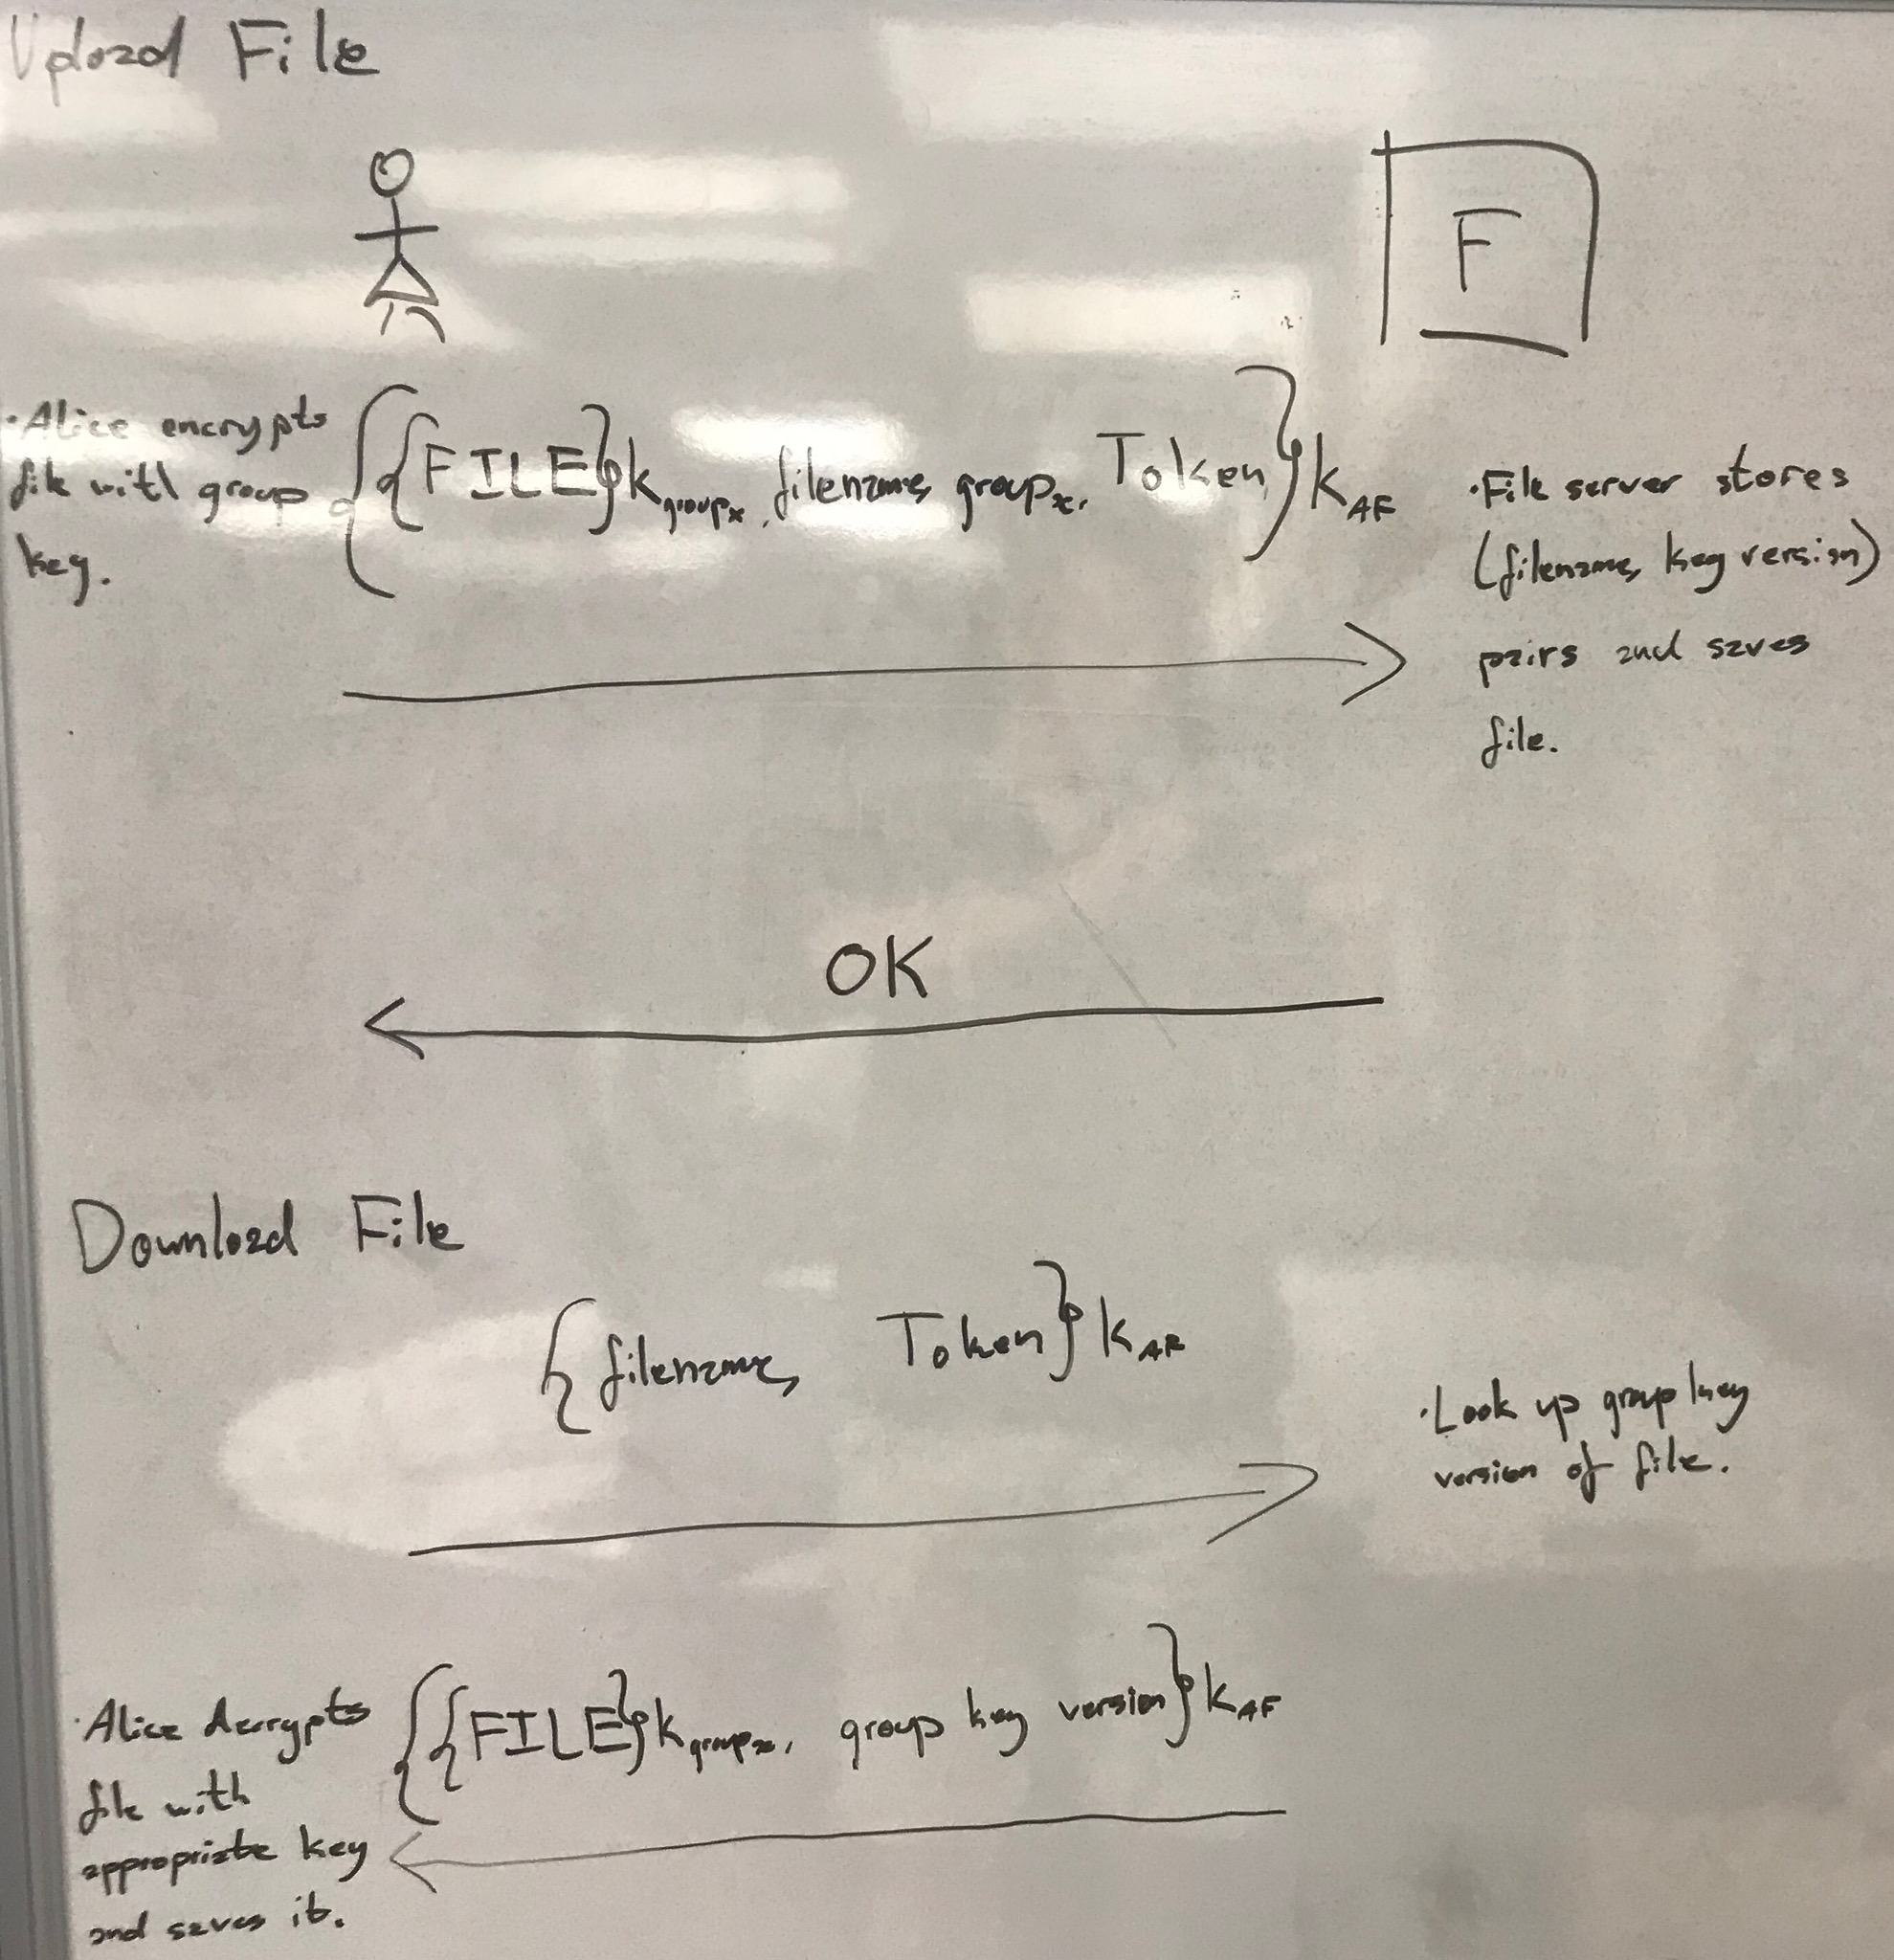 Upload File
F
·Alice encrypts
file with group
key.
{{FILE}k groupx, filename, groupx, Token}k AF
·File server stores
(filename, key version)
pairs and saves
file.
OK
Download File
{filename, Token}k AF
·Look up group key
version of file.
·Alice decrypts
file with
appropriate key
and saves it.
{{FILE}k groupx, group key version}k AF